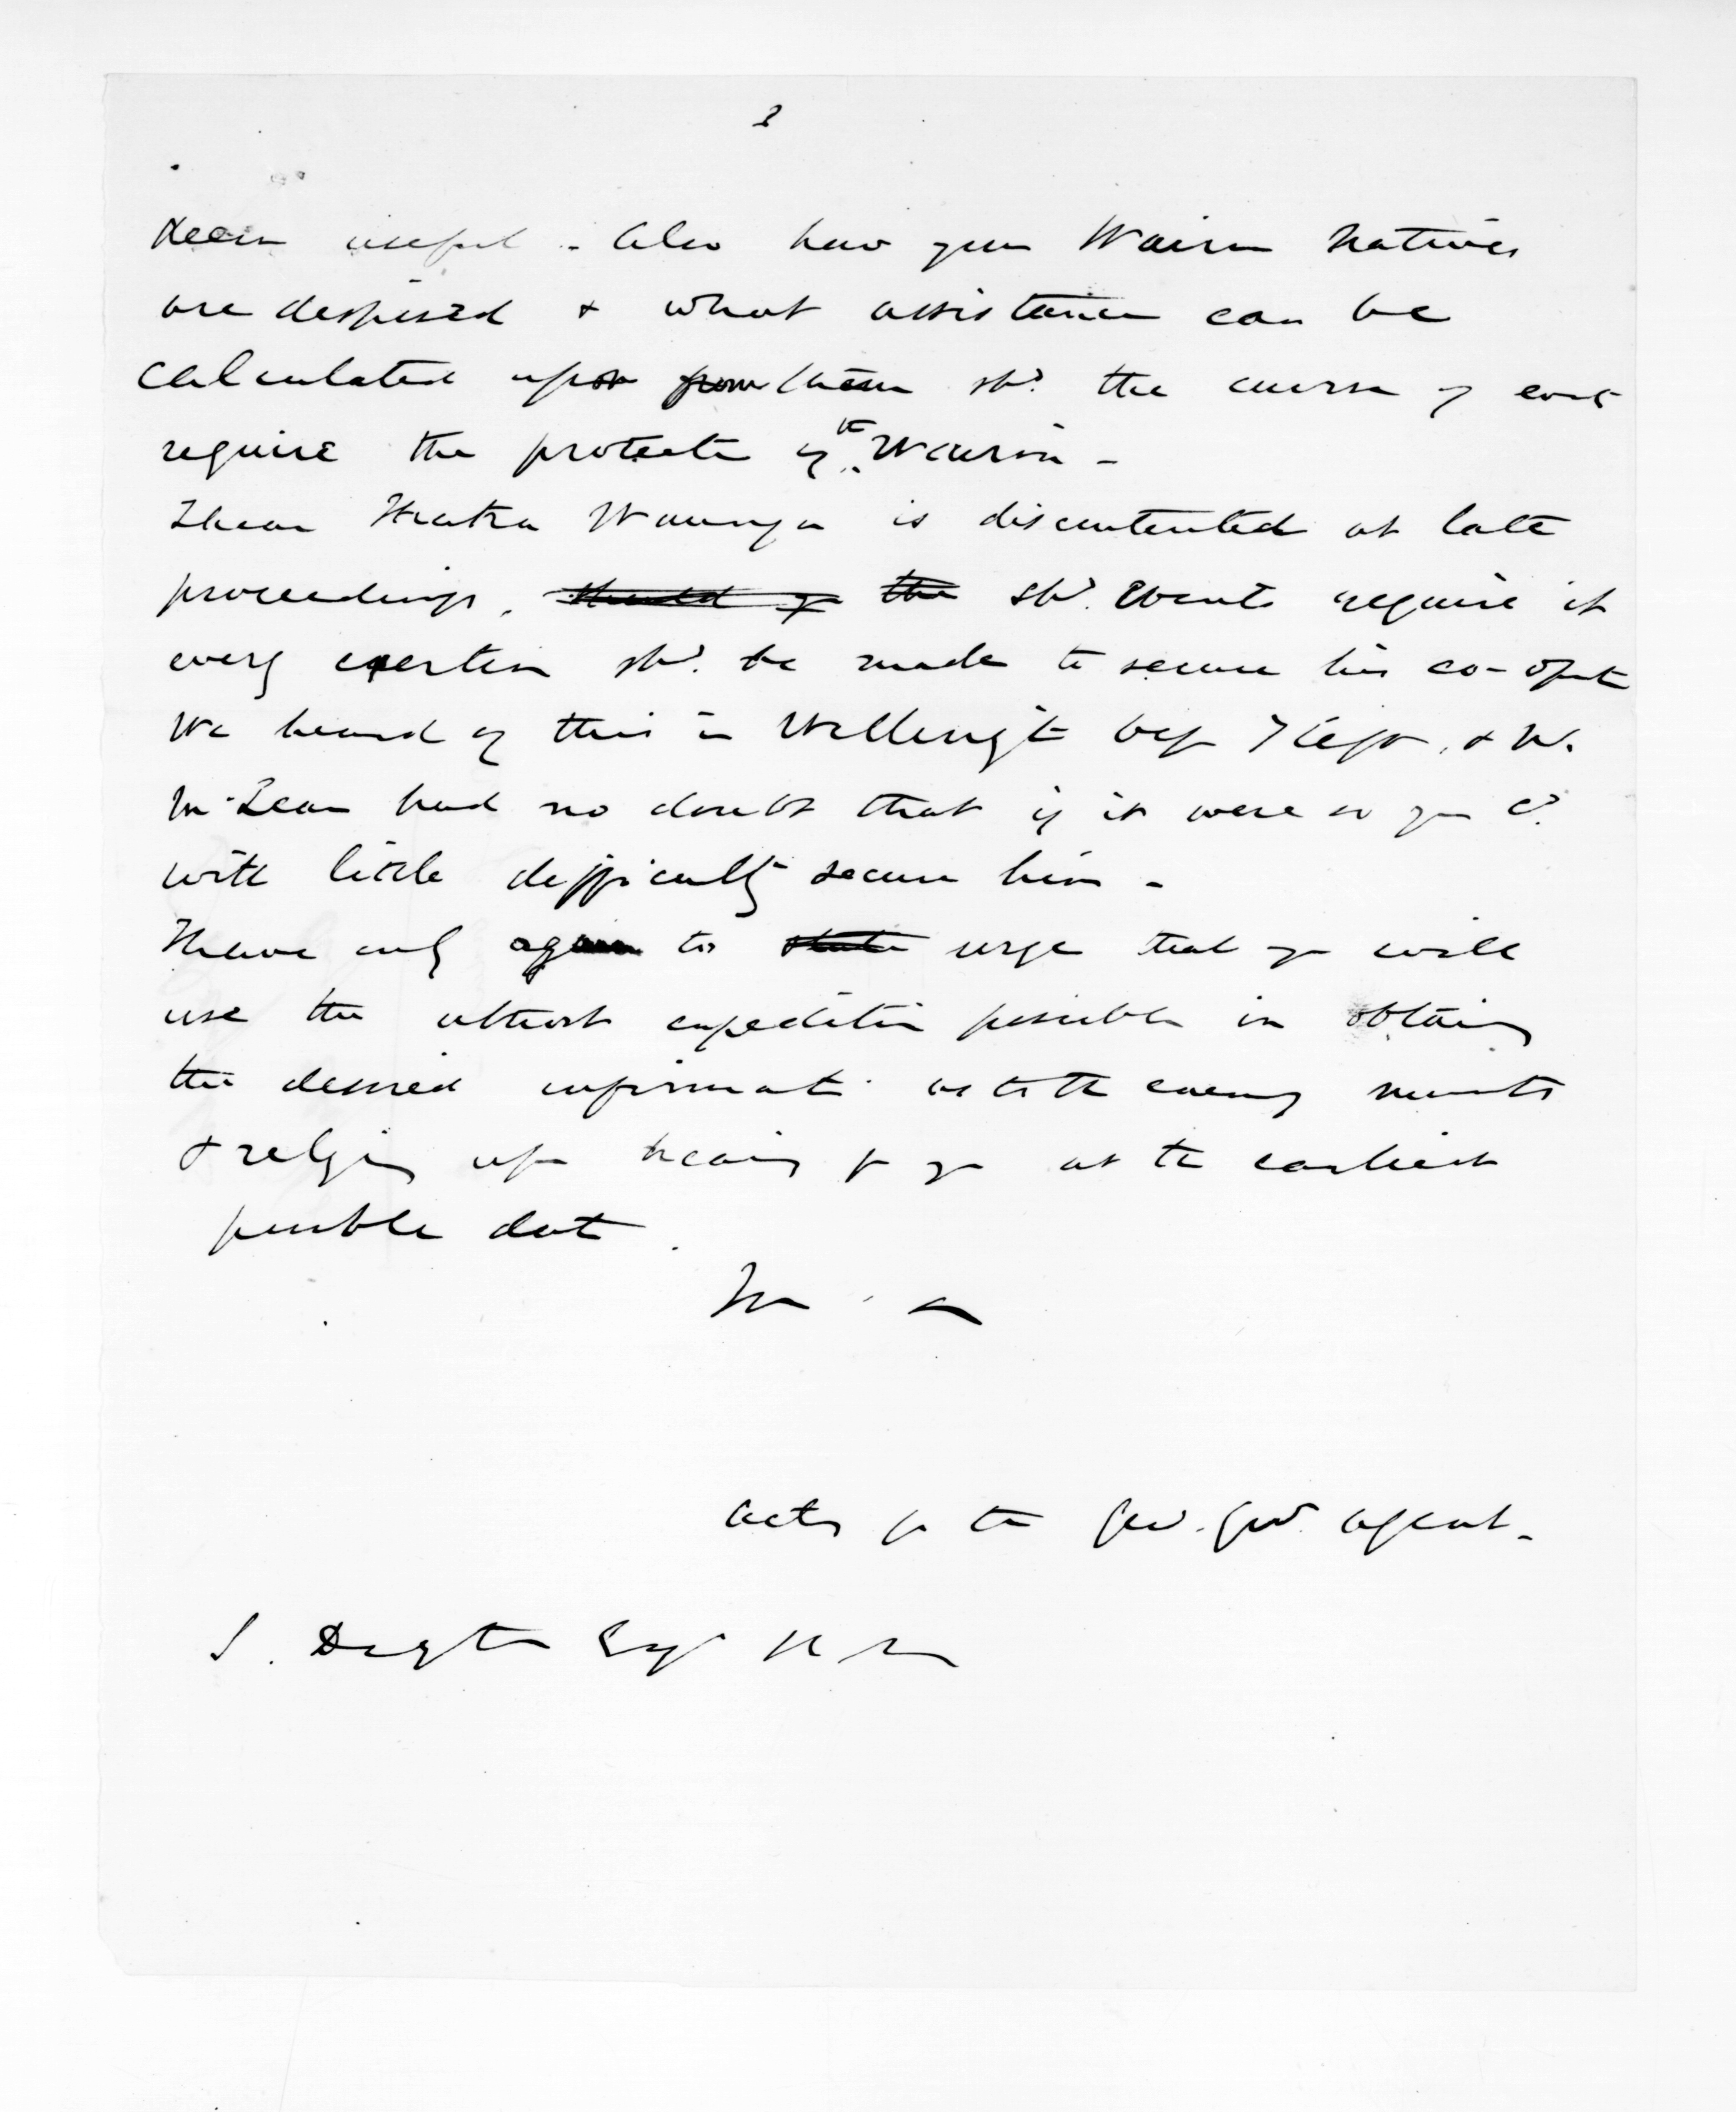 2
deem useful. Also how your Wairoa Natives
are disposed & what assistance can be
calculated upon from them shd. the course of events
require the protectn of the Wairoa -
I hear Ihaka Waanga is discontented at late
proceedings. should the shd. Events require it
every exertion shd. be made to secure his co-opt
We heard of this in Wellingtn bef I left, & Mr.
McLean had no doubt that if it were so you cd.
with little difficulty secure him -
I have only again to state urge that you will
use the utmost expedition possible in obtaing
the desired informatn as to the enemy
& relying upn hearing fr you at the earliest
possible date.
actg for the Genl. Govt. agent.
S. Deighton Esqr R M